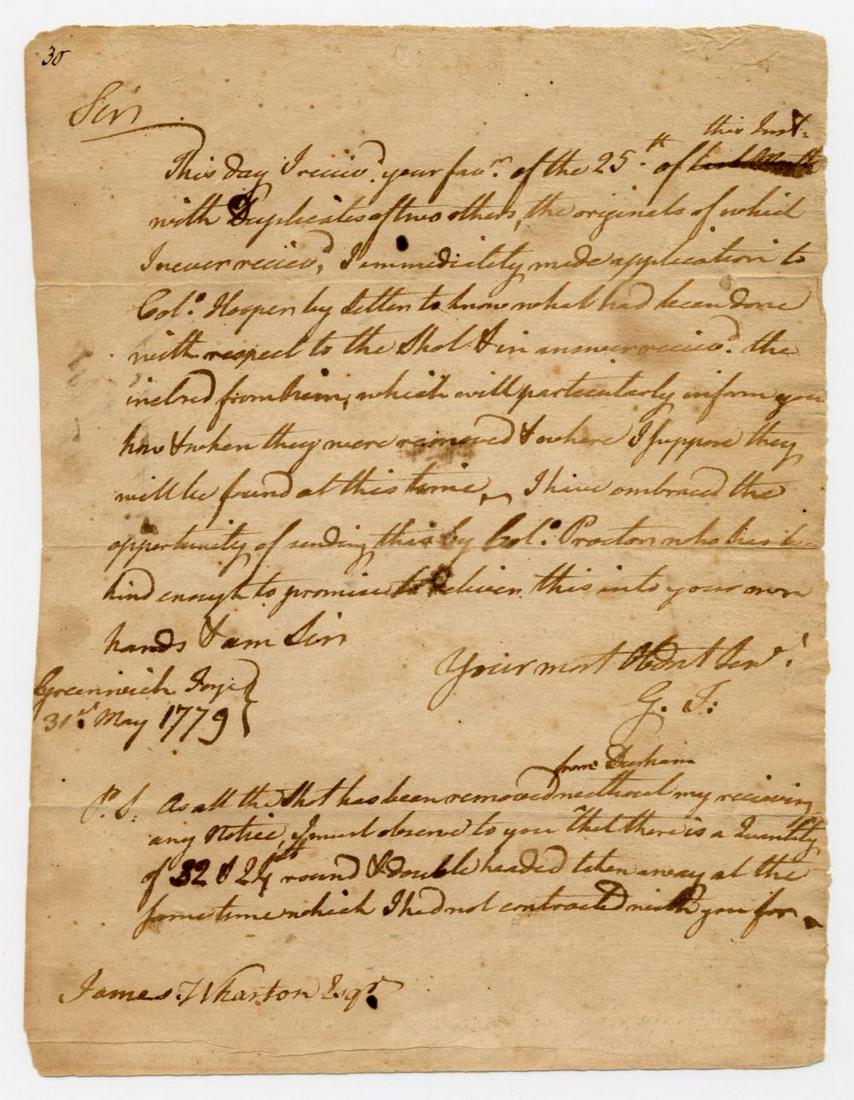 30
Sir
this Inst.
This day I reciev'd your favr. of the 25th of
with Duplicates of two others, the originals of which
I never reciev'd, I immediately made application to
Colo. Hooper by Letter to know what had been done
with respect to the Shot & in answer reciev'd the
inclosed from him, which will particularly inform you
how & when they were removed & where I suppose they
will be found at this time, I have embraced the
opportunity of sending this by Colo. Procter who has been
kind enough to promise to deliver this into your own
hands & am Sir
Your most Obdnt Servt.
G. T:
Greenwich Forge
31st. May 1779
from Durham
P.S. As all the Shot has been removed without my recieving
any Notice, I must observe to you That there is a Quantity
of 32 & 24 round & double headed taken away at the
same time which I had not contracted with you for
James Wharton Esqr.